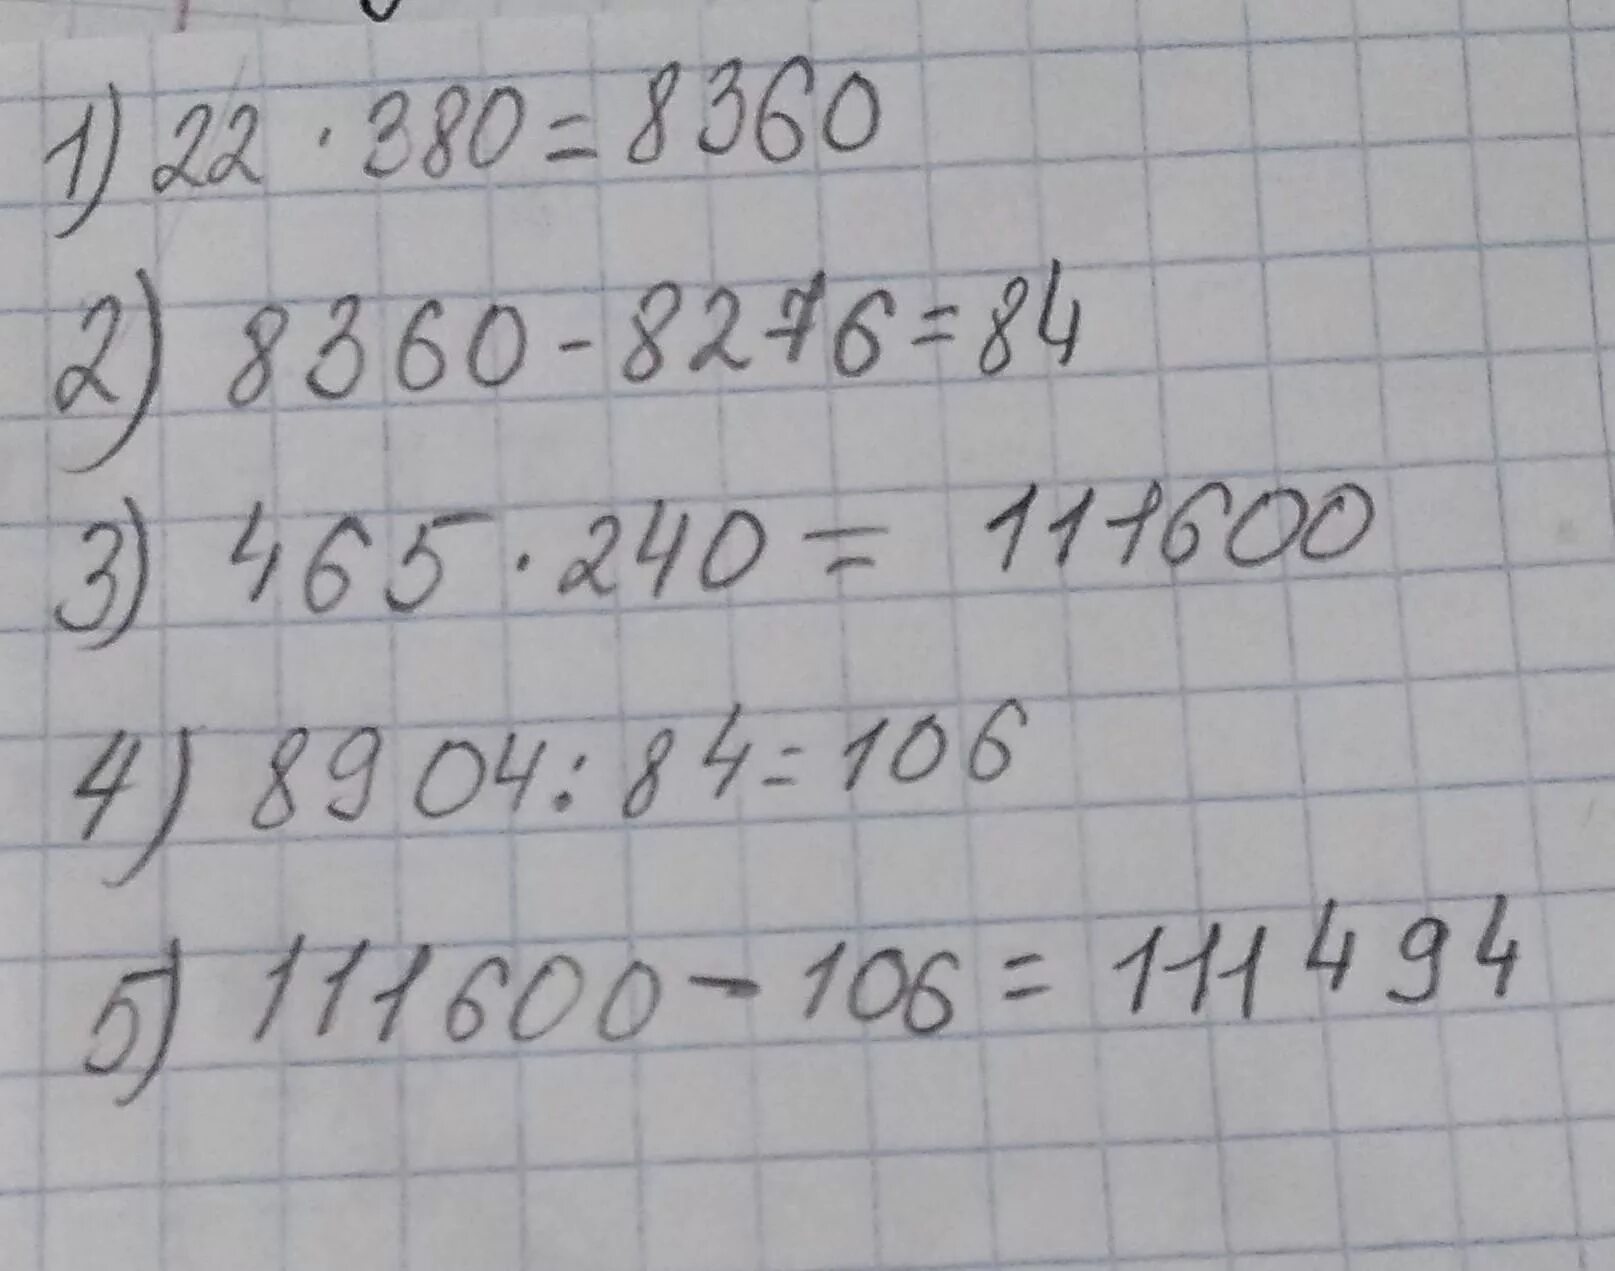 1) 22 · 380 = 8360
2) 8360 - 8276 = 84
3) 465 · 240 = 111600
4) 8904 : 84 = 106
5) 111600 - 106 = 111494